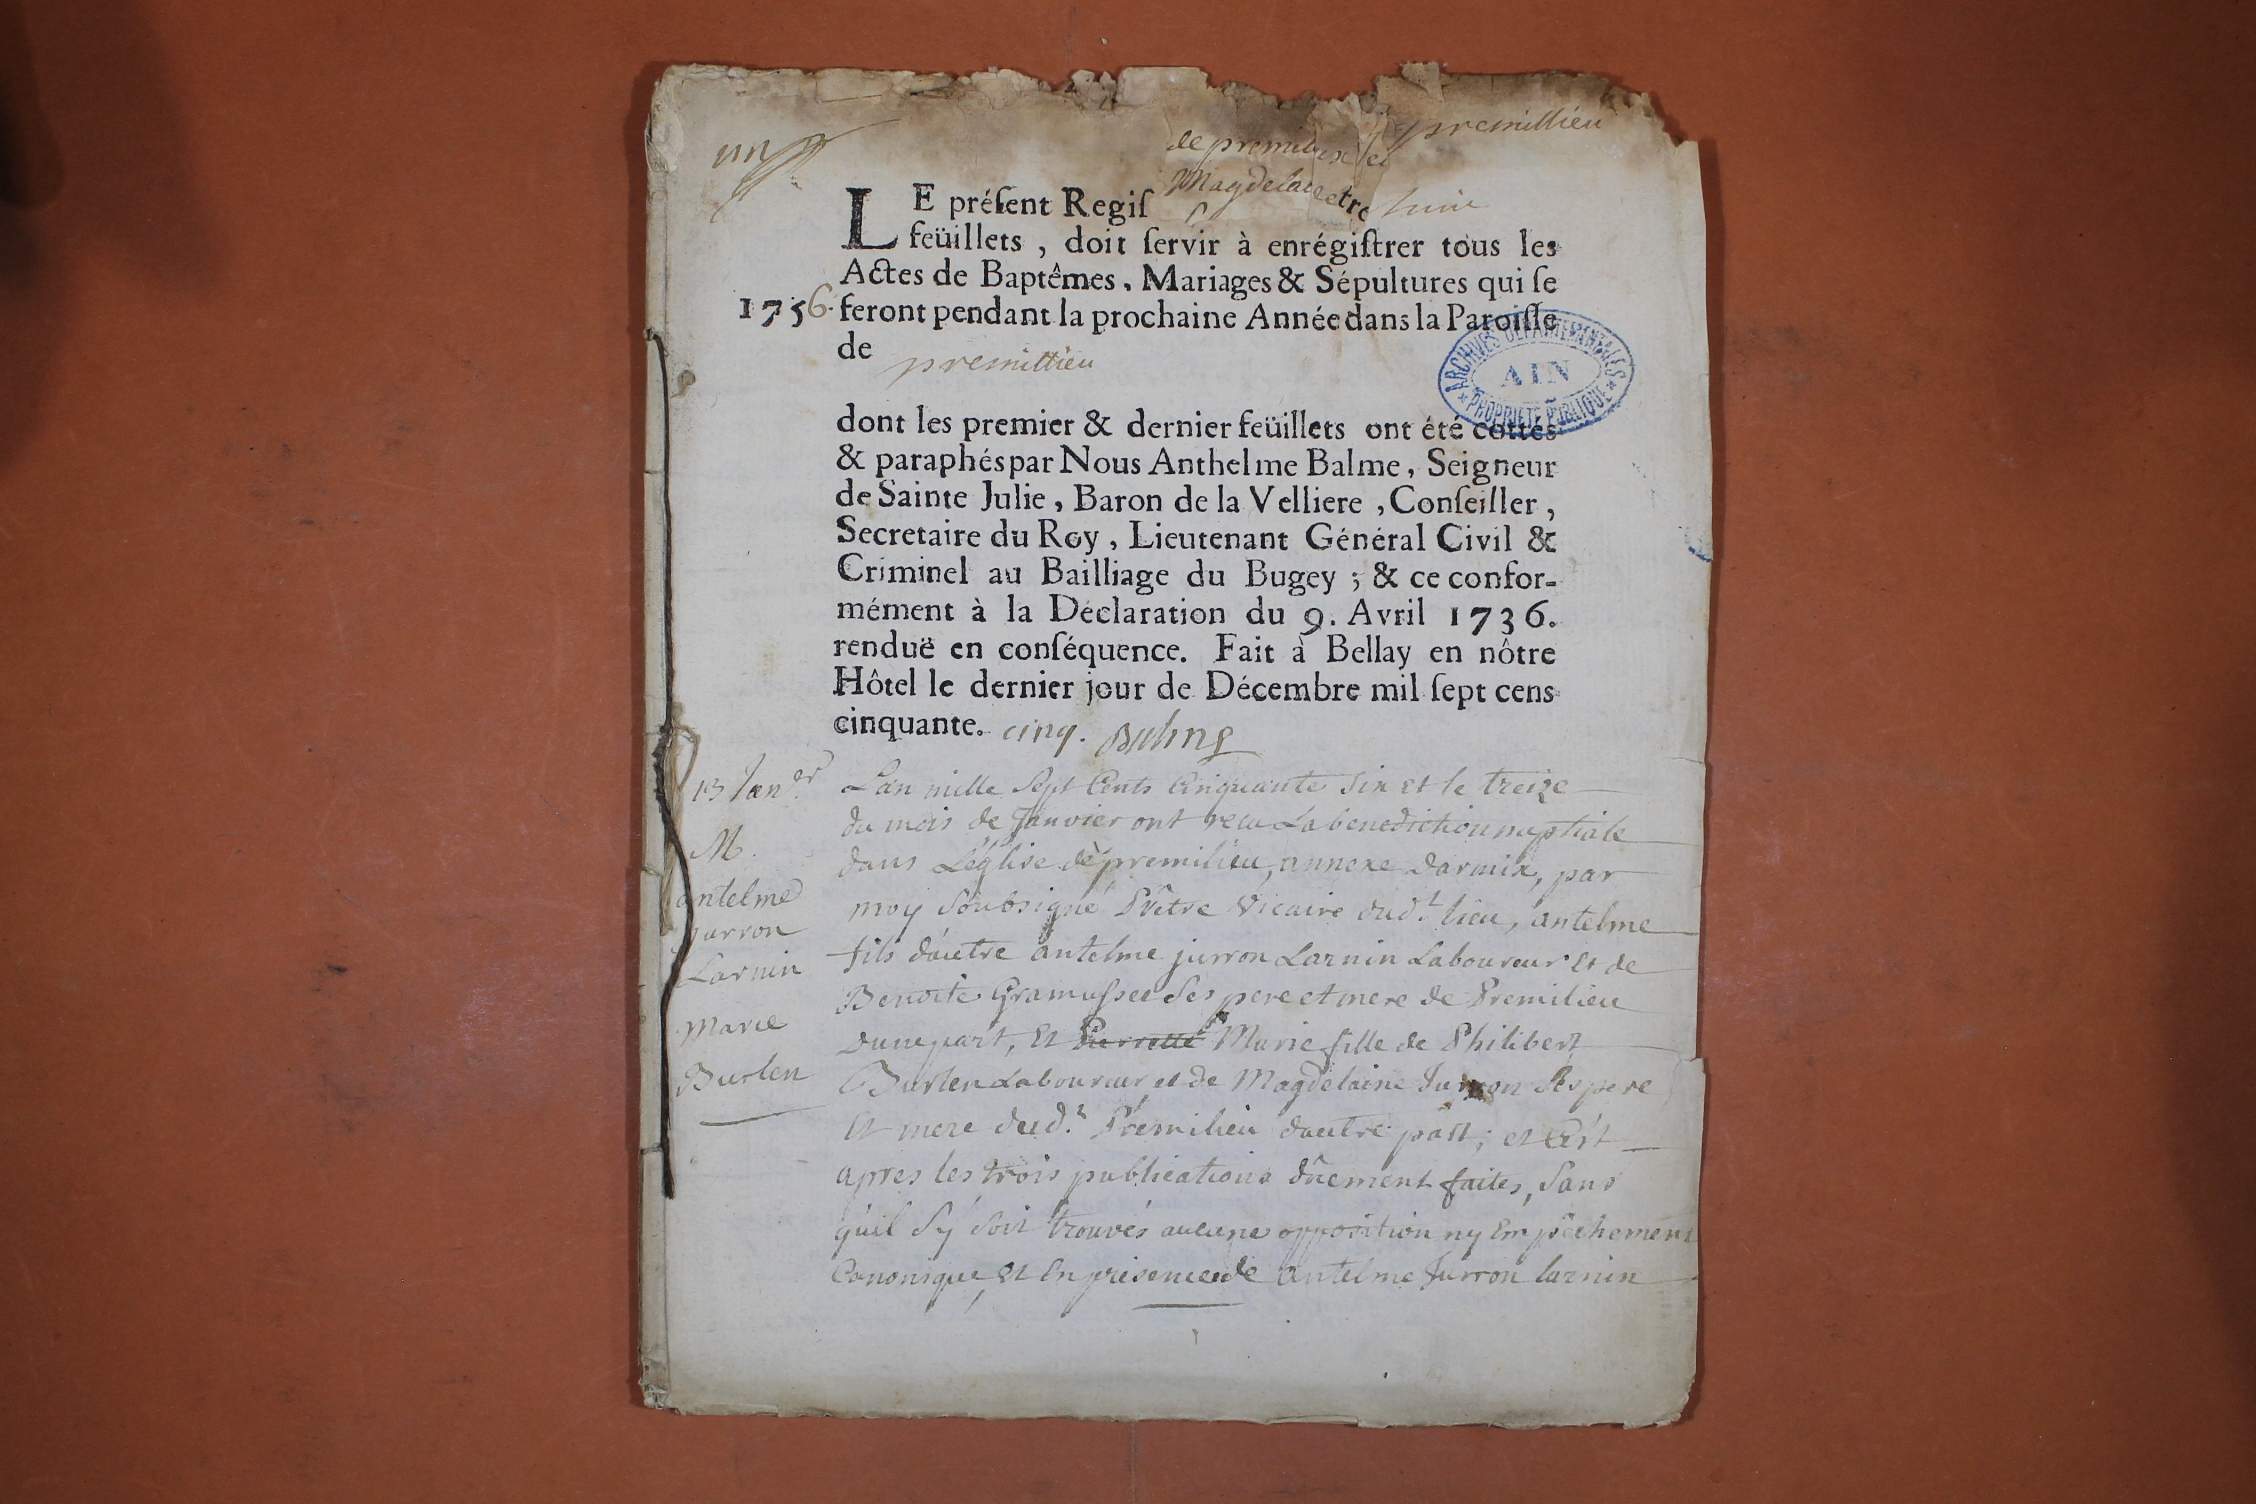 un
premillieu
de premilieu et
Magdelai
LE préſent Regiſ
feüillets , doit ſervir à enrégiſtrer tous les
Actes de Baptêmes, Mariages & Sépultures qui ſe
1756. feront pendant la prochaine Année dans la Paroiſſe
de premillieu
ARCHIVES DÉPARTEMENTALES
AIN
PROPRIÉTÉ PUBLIQUE
dont les premier & dernier feüillets ont été cottés
& paraphés par Nous Anthelme Balme, Seigneur
de Sainte Julie, Baron de la Velliere, Conſeiller,
Secretaire du Roy, Lieutenant Général Civil &
Criminel au Bailliage du Bugey ; & ce confor-
mément à la Déclaration du 9. Avril 1736.
renduë en conſéquence. Fait à Bellay en nôtre
Hôtel le dernier jour de Décembre mil ſept cens
cinquante. cinq.
13 Jan.er
M.
antelme
jurron
Larnin
Marie
Burlen
Lan mille Sept Cents Cinquante Six et le treize
du mois de Janvier ont recu La benediction nuptiale
dans L'église de premilieu, annexe darmix, par
moy Soubsigné Prêtre Vicaire dud.t lieu, antelme
fils dautre antelme jurron Larnin Laboureur et de
Benoite Gramussee Ses pere et mere de Premilieu
Dune part, et Pierrette Marie fille de Philibert
Burlen Laboureur et de Magdelaine Jurron Ses pere
et mere dud.t Prémilieu dautre part; et C'est
apres les trois publications dûement faites, Sans
quil Sy Soit trouvés aucune opposition ny Empêchement
Canonique, et En présence de antelme Jurron larnin